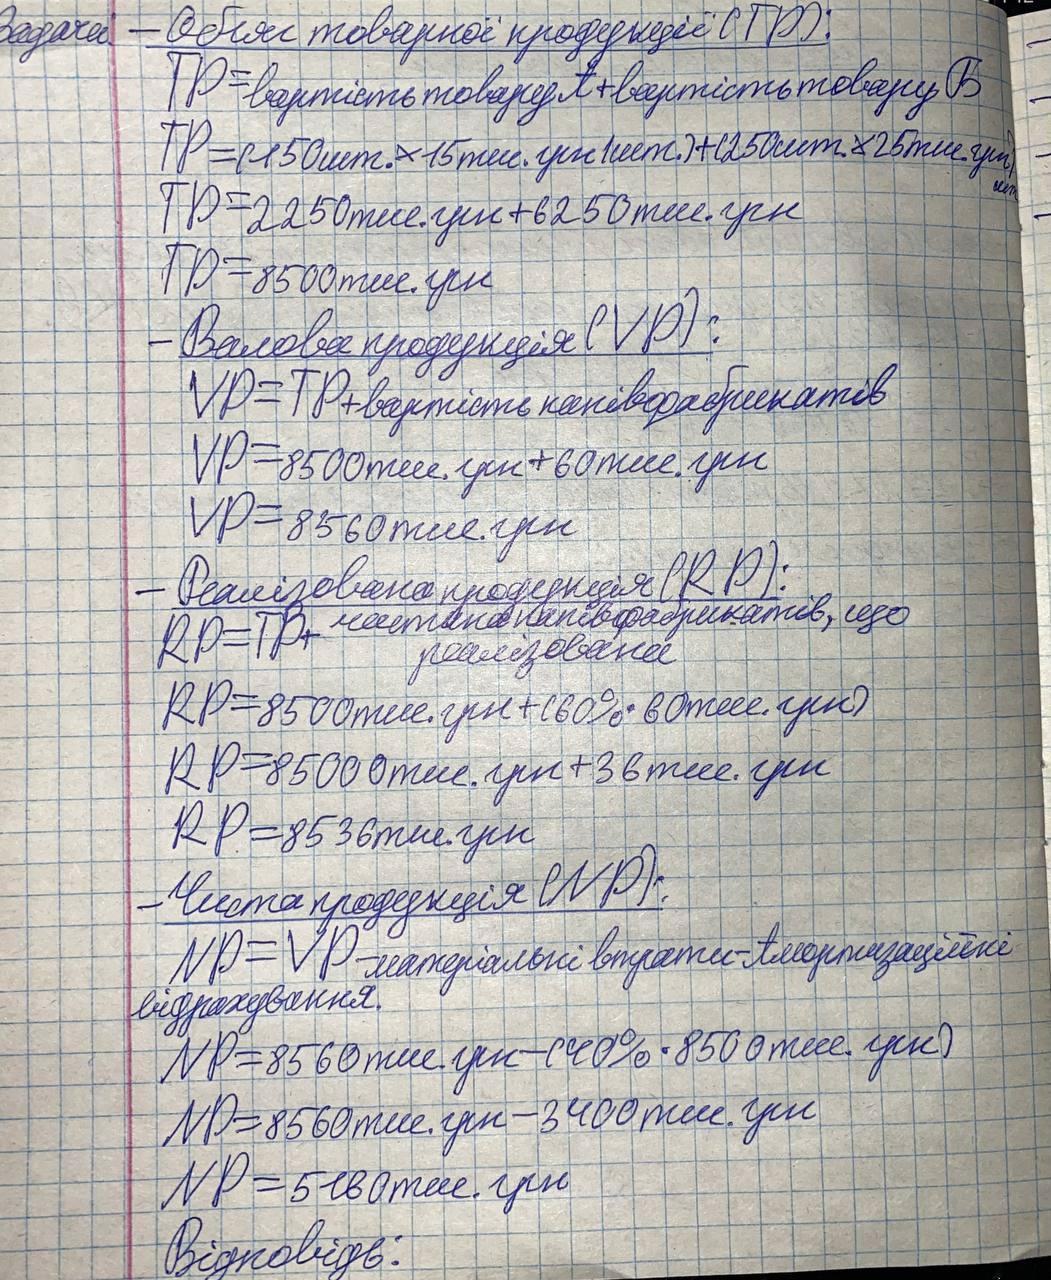 Задача – Обсяг товарної продукції (ТР):
ТР=вартість товару А+вартість товару Б
ТР=(150шт.×15тис.грн/шт.)+(250шт.×25тис.грн/шт)
ТР=2250тис.грн+6250тис.грн
ТР=8500тис.грн
– Валова продукція (VP):
VP=TP+вартість напівфабрикатів
VP=8500тис.грн+60тис.грн
VP=8560тис.грн
– Реалізована продукція (RP):
RP=TP+ частина напівфабрикатів, що
реалізована
RP=8500тис.грн+(60%·60тис.грн)
RP=85000тис.грн+36тис.грн
RP=8536тис.грн
– Чиста продукція (NP):
NP=VP–матеріальні втрати–Амортизаційні
відрахування.
NP=8560тис.грн–(40%·8500тис.грн)
NP=8560тис.грн–3400тис.грн
NP=5160тис.грн
Відповідь: